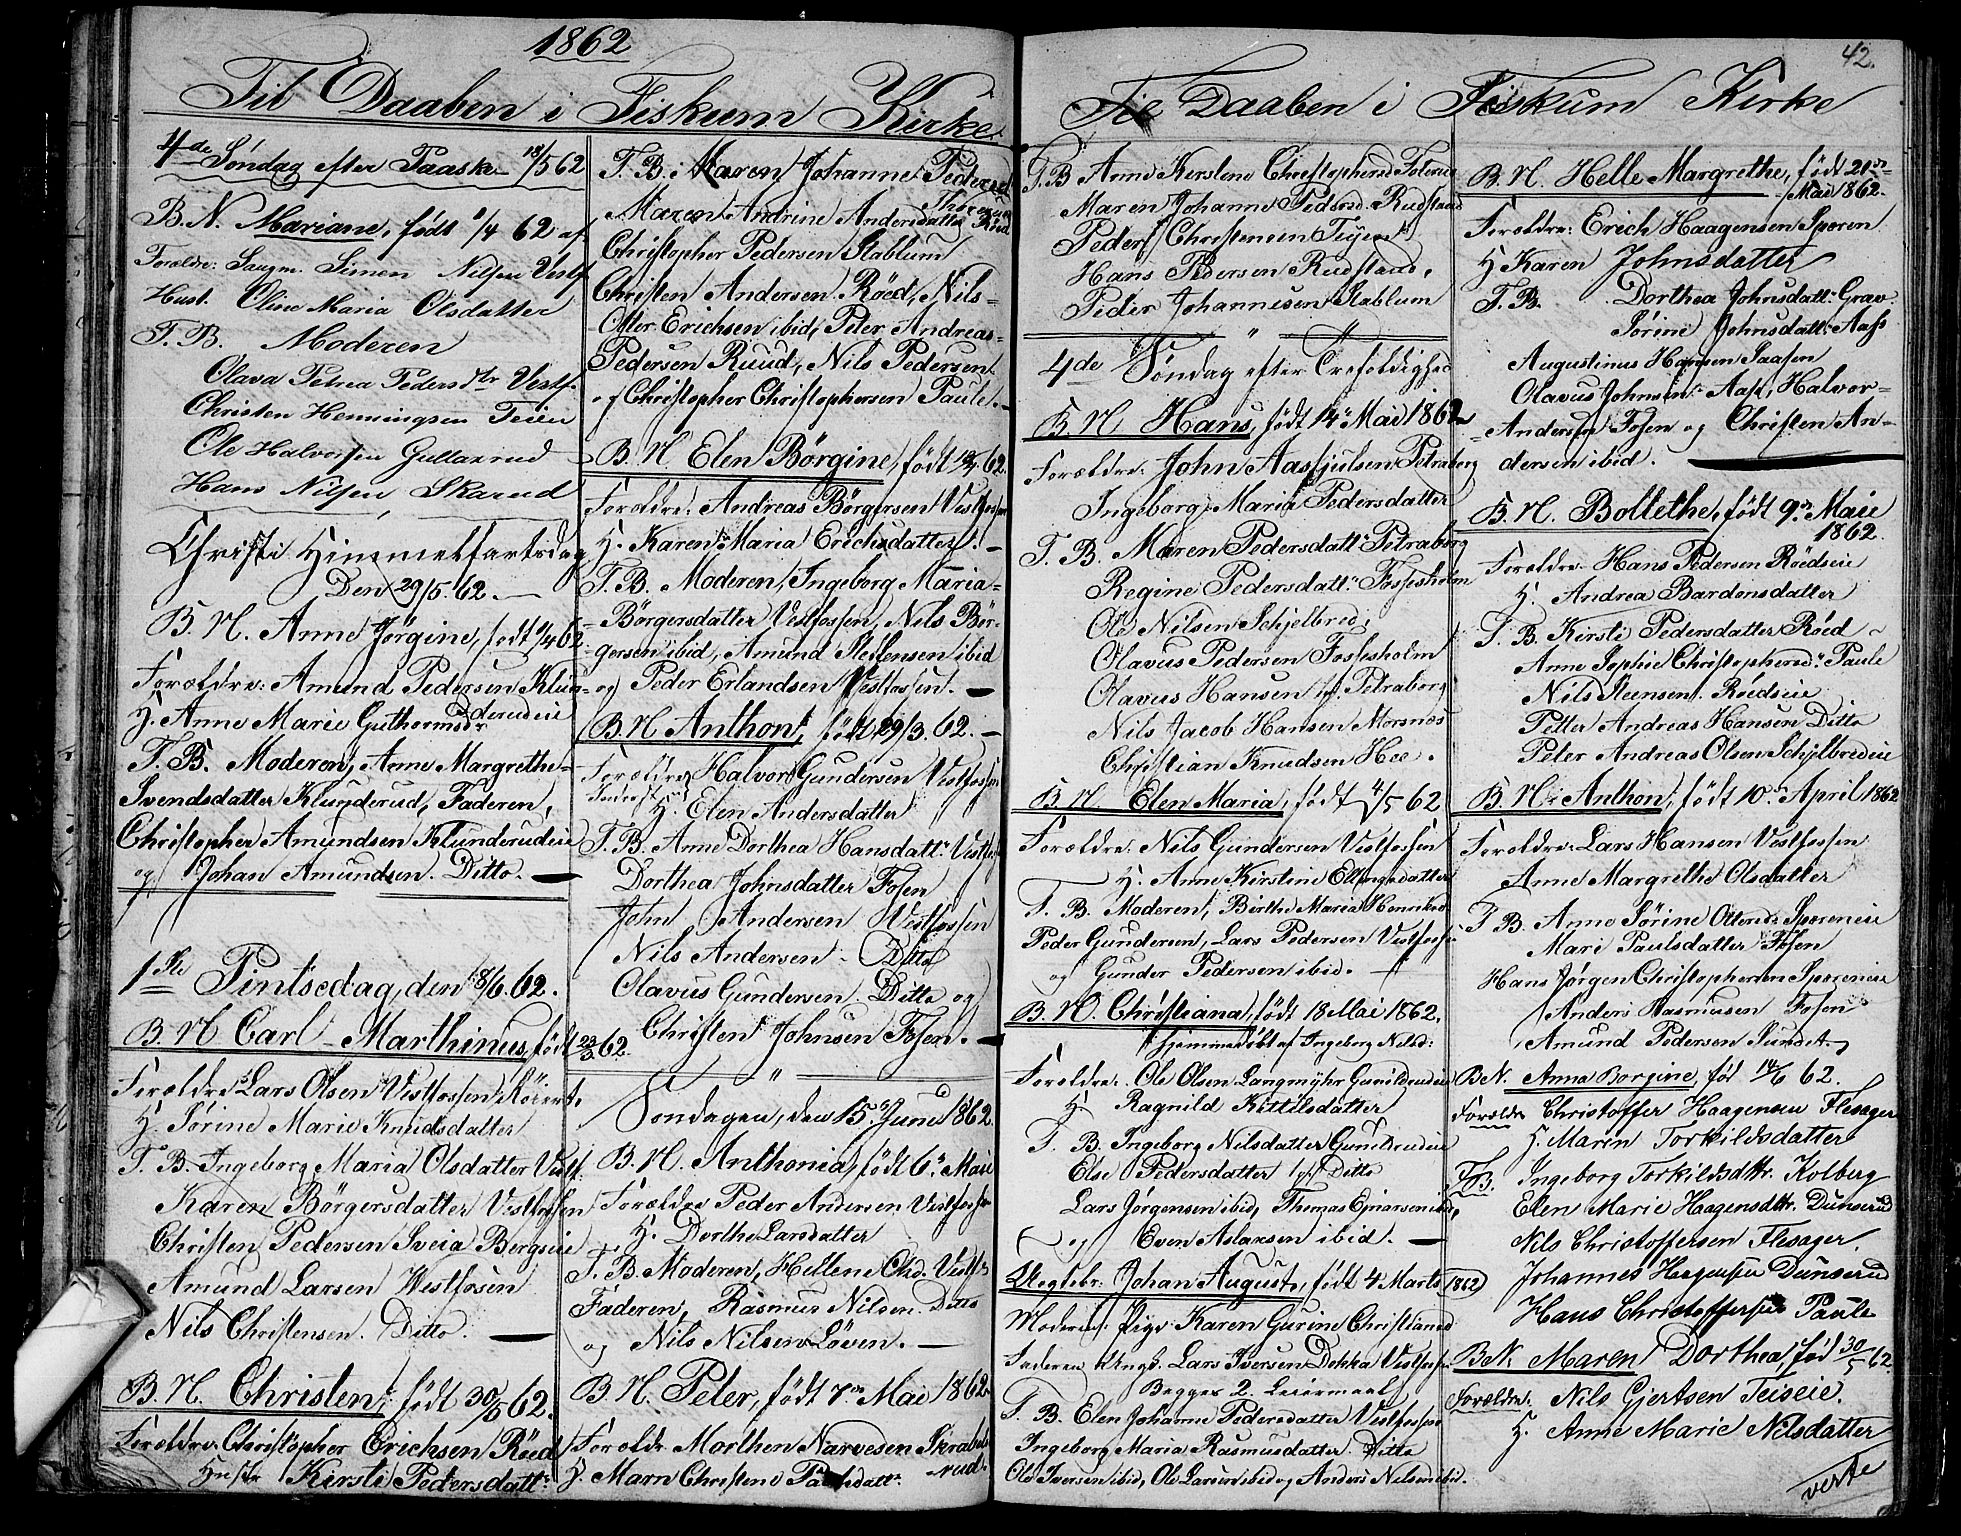 1862
Til Daaben i Fiskum Kirke.
4de Söndag efter Paaske 18/5 62
B. N. Mariane, född 1/4 62 af
Forældre: Saugm. Simon Nilsen Vestf.
Hust. Oline Maria Olsdatter
F. B. Moderen
Olava Petrea Pedersdtr Vestf.
Christen Henningsen Teien
Ole Halvorsen Gullaxrud
Hans Nilsen, Skarud
Christi Himmelfartsdag
Den 29/5. 62.
B. N. Anne Jörgine, född 1/4 62
Forældre: Amund Pedersen Klun-
derudeie
H. Anne Marie Guthormsdr
F. B. Moderen, Anne Margrethe
Svendsdatter Klunderud, Faderen,
Christopher Amundsen Klunderudeie
og Johan Amundsen. Ditto.
1ste Pintsedag, den 8/6. 62.
B. N. Carl Marthinus, född 23/3 62.
Forældre Lars Olsen Vestfossen
H. Sörine Marie Knudsdatter
F. B. Ingeborg Maria Olsdatter Vestf.
Karen Börgersdatter Vestfossen
Christen Pedersen Sveia Bergseie
Amund Larsen Westfosen
Nils Christensen. Ditto.
B. N. Christen, född 30/5 62.
Forældre: Christopher Erichsen Röed
Hustr Kirsti Pedersdatt:
F. B: Karen Johanne Pedersd
Maren Andrine Andersdatter Röed
Christopher Pedersen Stablum
Christen Andersen Röed, Nils
Otter Erichsen ibid, Peter Andreas
Pedersen Ruud, Nils Pedersen
og Christopher Christophersen Paule.
B. N. Elen Börgine, född 62.
Forældre: Andreas Börgersen Vestfossen
H. Karen Maria Erichsdatter.
F. B. Moderen, Ingeborg Maria
Börgersdatter Vestfossen, Nils Bör-
gersen ibid, Amund Steffensen ibid
og Peder Erlandsen Vestfossen.
B. N. Anthon, född 29/3. 62.
Forældre Halvor Gundersen Vestfossen
H. Elen Andersdatter
F. B. Anne Dorthea Hansdatt: Vestfos
Dorthea Johnsdatter Fosen
John Andersen Westfossen
Nils Andersen Ditto
Olavus Gundersen. Ditto og
Christen Johnsen Fosen.
Söndagen, den 15 Juni 1862.
B. N. Anthonia, född 6 Mai
Forældre Peder Andersen Vestfossen
H. Dorthe Larsdatter
F. B. Moderen, Hellene Olsd. Vestf
Faderen, Rasmus Nilsen. Ditto
og Nils Nilsen Löven.
B. N. Peter, född 7 Mai 1862
Forældr. Morthen Narvesen Skrabel-
rud.
H. Marn Christene Paulsdatt:
42.
Til Daaben i Fiskum Kirke
F. B Anne Kirstene Christophersd
Maren Johanne Pedersd. Rudstand
Peder Christensen Teien
Hans Pedersen Rudstand,
Peder Johannesen Stablum
4de Söndag efter Trefoldighed
B. N Hans, född 14 Mai 1862
Forældre: John Aasfjulsen Petraborg
Ingeborg Maria Pedersdatter
F. B. Maren Pedersdatt: Petraborg
Regine Pedersdatt: Fossesholm
Ole Nilsen Schjelbred,
Olavus Pedersen Fossesholm
Olavus Hansen Petraborg
Nils Jacob Hansen Morsnes
Christian Knudsen Hee.
B. N. Elen Maria, född 4/5 62
Forældre: Nils Gundersen Vestfossen
H. Anne Kirstine Ellingsdatter
F. B. Moderen, Birthe Maria Henriksd
Peder Gundersen, Lars Pedersen Vestfosse
og Gunder Pedersen ibid.
B. N. Christiana, född 18 Mai 1862.
hjemmedöbt af Ingeborg Nilsd:
Forældre: Ole Olsen Langmyhr Gunildrudeie
H. Ragnild Kittilsdatter
F. B. Ingeborg Nilsdatter Gunildrudeie
Else Pedersdatter Ditto
Lars Jörgensen ibid, Thomas Ejnarsen ibid,
og Even Aslaksen ibid.
Uegtebr: Johan August, född 4 Marts 1862
Moderen: Pige Karen Gurine Christiansd
Faderen Ungk. Lars Iversen Dokka Vestfos
Begges 2. Leiermaal
F. B. Elen Johanne Pedersdatter Vestfossen
Ingeborg Maria Rasmusdatter. Ditto
Ole Iversen ibid, Ole Larsen ibid og Anders Nilsen ibid.
B. N. Helle Margrethe, född 21de
Mai 1862.
Forældre: Erich Haagensen Sporen
H Karen Johnsdatter
F. B. Dorthea Johnsdatt: Grav
Sörine Johnsdatt: Aass
Augustinus Hansen Saasen
Olavus Johnsen Aass, Halvor
Andersen Fosen og Christen An-
dersen ibid.
B. N. Bollethe, född 9 Maie
1862.
Forældre Hans Pedersen Röedseie
H. Andrea Bardonsdatter
F. B. Kirsti Pedersdatter Röed
Anne Sophie Christophersd: Paule
Nils Steensen Röedseie
Petter Andreas Hansen Ditto
Peter Andreas Olsen Schjelbredeie
B. N. Anthon, född 10 April 1862
Forældre Lars Hansen Vestfossen
Anne Margrethe Olsdatter
F. B. Anne Sörine Ottersd: Sporeneie
Mari Paulsdatter Fosen
Hans Jörgen Christophersen Sporeneie
Anders Rasmusen Fosen
Amund Pedersen Sundet
B.N. Anna Borgine, föd 14/6 62.
Forældre Christoffer Haagensen Flesager
H. Maren Torkildsdatter
F.B. Ingeborg Torkildsdtr. Kolberg
Elen Marie Haagensdtr. Dunserud
Nils Christoffersen Flesager.
Johannes Haagensen Dunserud
Hans Christoffersen Paule
B.N. Maren Dorthea, föd 30/5 62
Forældre: Nils Gjertsen Teiseie.
H. Anne Marie Nilsdatter
verte